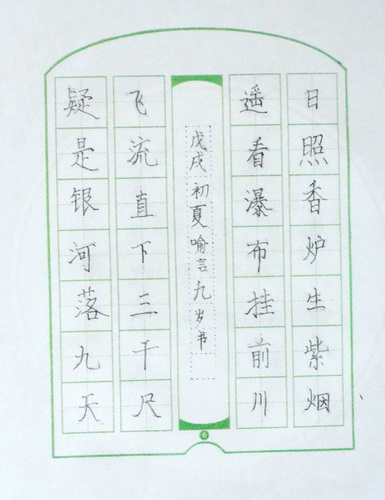 日照香炉生紫烟
遥看瀑布挂前川
戊戌初夏喻言九岁书
飞流直下三千尺
疑是银河落九天